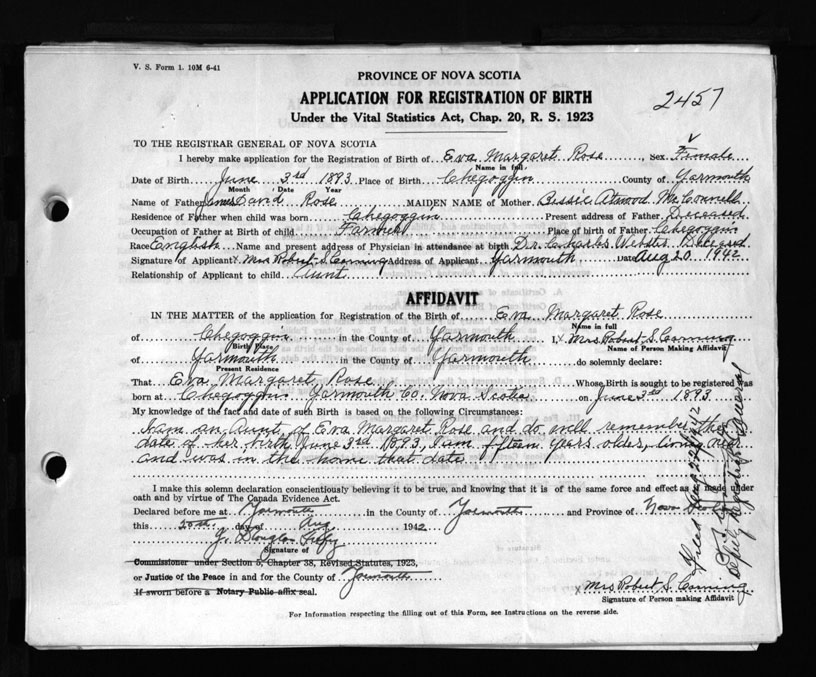 V. S. Form 1. 10M 6-41
PROVINCE OF NOVA SCOTIA
APPLICATION FOR REGISTRATION OF BIRTH
2457
Under the Vital Statistics Act, Chap. 20, R. S. 1923
TO THE REGISTRAR GENERAL OF NOVA SCOTIA
I hereby make application for the Registration of Birth of Eva Margaret Rose, Sex Female
Name in full
Date of Birth June 3rd 1893 Place of Birth Chegoggin County of Yarmouth
Month Date Year
Name of Father James Rose MAIDEN NAME of Mother Bessie Atwood McConnell
Residence of Father when child was born Chegoggin Present address of Father Deceased
Occupation of Father at Birth of child Farmer Place of birth of Father Chegoggin
Race English Name and present address of Physician in attendance at birth Dr. Charles Webster Deceased
Signature of Applicant x Mrs Robert S. Corning Address of Applicant Yarmouth Date Aug 20 1942
Relationship of Applicant to child Aunt
AFFIDAVIT
IN THE MATTER of the application for Registration of Birth of Eva Margaret Rose
Name in full
of Chegoggin in the County of Yarmouth I, Mrs Robert S. Corning
Birth Place Name of Person Making Affidavit
of Yarmouth in the County of Yarmouth do solemnly declare:
Present Residence
That Eva Margaret Rose Whose Birth is sought to be registered was
born at Chegoggin Yarmouth Co. Nova Scotia on June 3rd 1893
My knowledge of the fact and date of such Birth is based on the following Circumstances:
I am an Aunt of Eva Margaret Rose and do well remember the
date of her birth June 3rd 1893, I am fifteen years older, living near
and was in the home that date
I make this solemn declaration conscientiously believing it to be true, and knowing that it is of the same force and effect as if made under
oath and by virtue of The Canada Evidence Act.
Declared before me at Yarmouth in the County of Yarmouth and Province of Nova Scotia
this 20th day of Aug 1942
G. Douglas
Signature of
Commissioner under Section 5, Chapter 38, Revised Statutes, 1923,
or Justice of the Peace in and for the County of Yarmouth
If sworn before a Notary Public affix seal.
x Mrs Robert S. Corning
Signature of Person making Affidavit
For Information respecting the filling out of this Form, see Instructions on the reverse side.
Filed Aug 22 1942
Deputy Registrar General